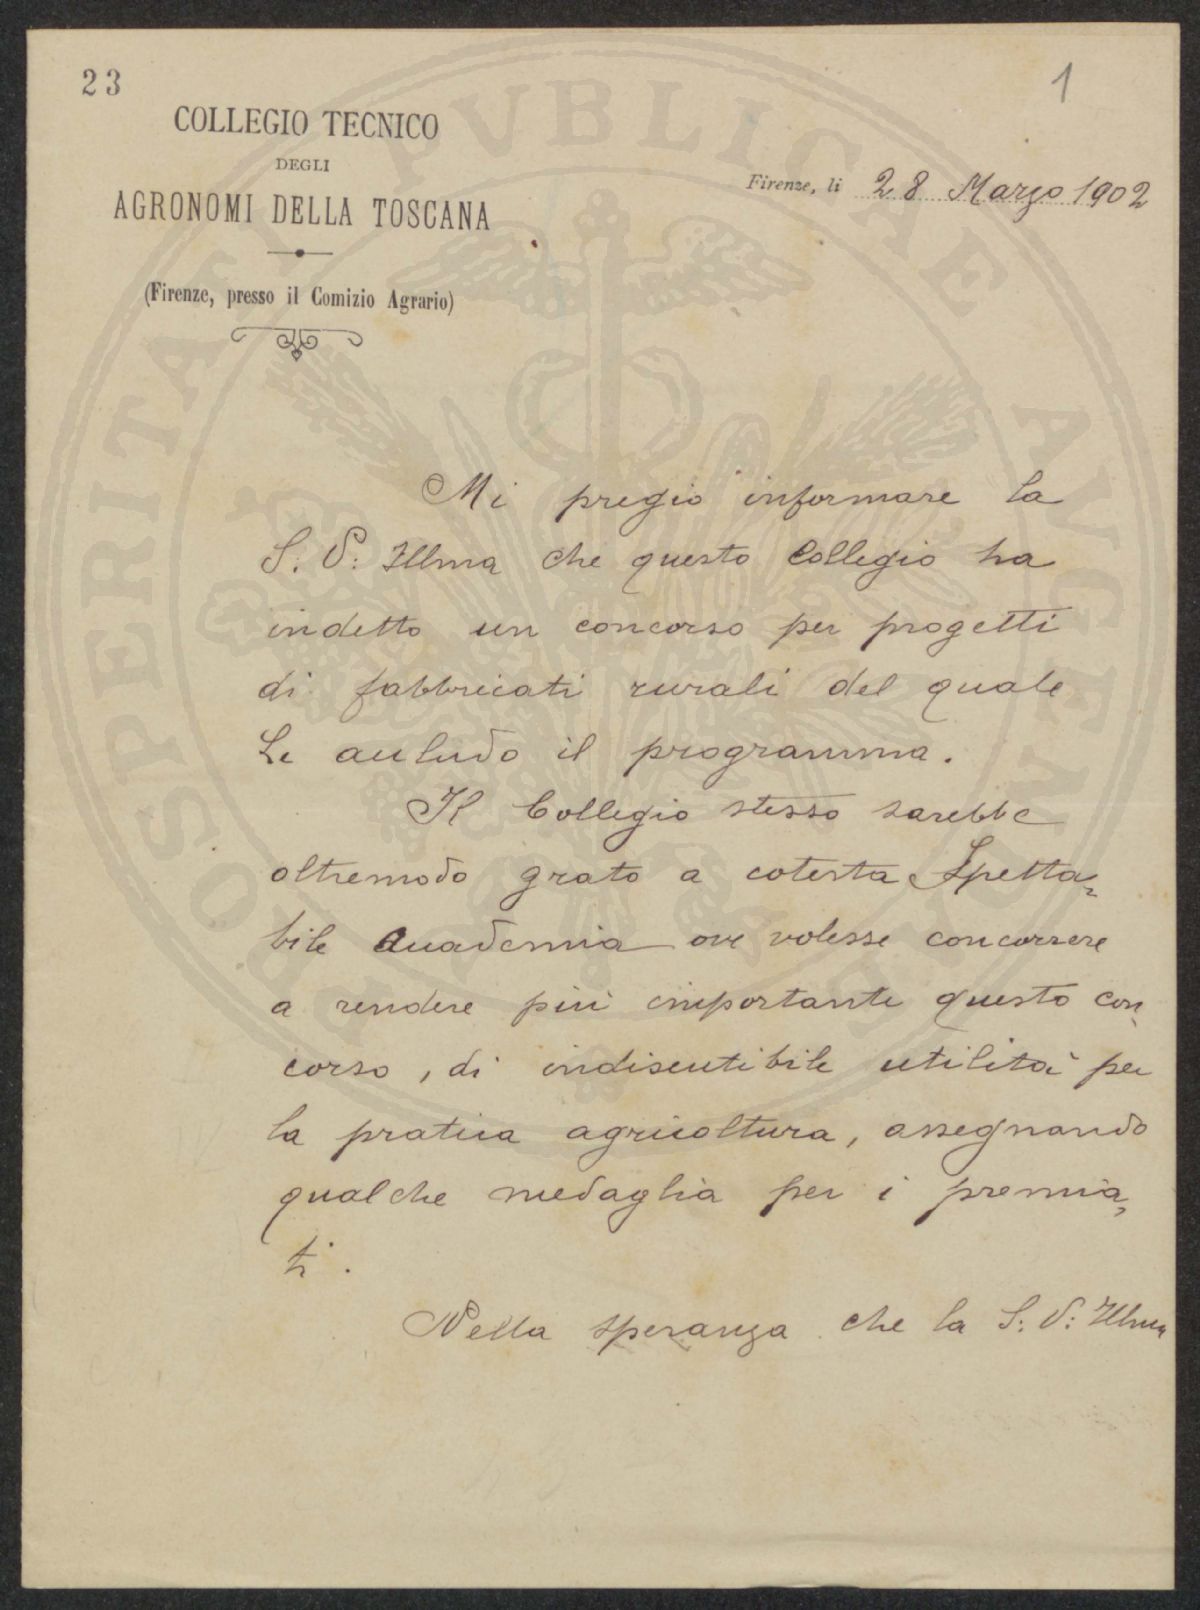 23
1
COLLEGIO TECNICO
DEGLI
AGRONOMI DELLA TOSCANA
(Firenze, presso il Comizio Agrario)
Firenze, li 28 Marzo 1902
Mi pregio informare la
S. V: Illma che questo Collegio ha
indetto un concorso per progetti
di fabbricati rurali del quale
Le accludo il programma.
Il Collegio stesso sarebbe
oltremodo grato a cotesta Spetta-
bile Accademia ove volesse concorrere
a rendere più importante questo con-
corso, di indiscutibile utilità per
la pratica agricoltura, assegnando
qualche medaglia per i premia-
ti.
Nella speranza che la S: V: Illma
PROSPERITATI PVBLICAE AVGENDAE